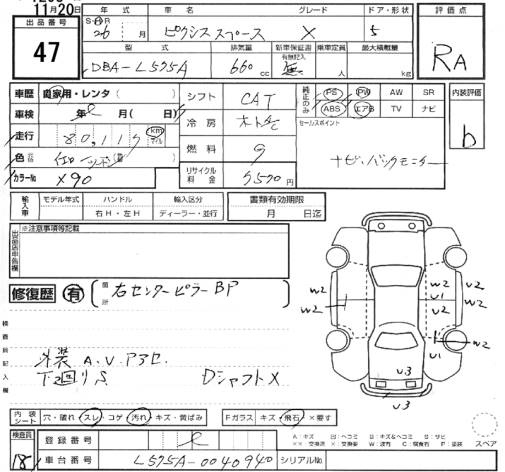 11月20日
出品番号
47
年式
車名
グレード
ドア・形状
S・H・R
26 月
ピクシススペース
X
5
評価点
RA
型式
排気量
新車保証書
有無記入
乗車定員
最大積載量
DBA-L575A
660 cc
無
人
kg
車歴
自家用・レンタ( )
車検
年 月( 日)
走行
80,115 km マイル
色
カラーNo
X90
シフト
CAT
冷房
オートAC
燃料
リサイクル料金
純正のみ
PS PW AW SR
ABS エアB TV ナビ
セールスポイント
ナビ、バックモニター
内装評価
b
輸入車
モデル年式
ハンドル
輸入区分
右H・左H
ディーラー・並行
書類有効期限
月 日迄
出品店申告欄
※注意事項等記载
修復歴
有
箇所
右センターピラーBP
検査員記入欄
外装 A.V.Pアセ
下回りS
DシャフトX
W2
W2
U1
U2
U2
W2
U1
U3
U3
内装シート
穴・破れ スレ コゲ 汚れ キズ・黄ばみ
Fガラス キズ 飛石 ×要す
A:キズ
スペア
検査員
登録番号
車台番号
L575A-0040940
シリアルNo.